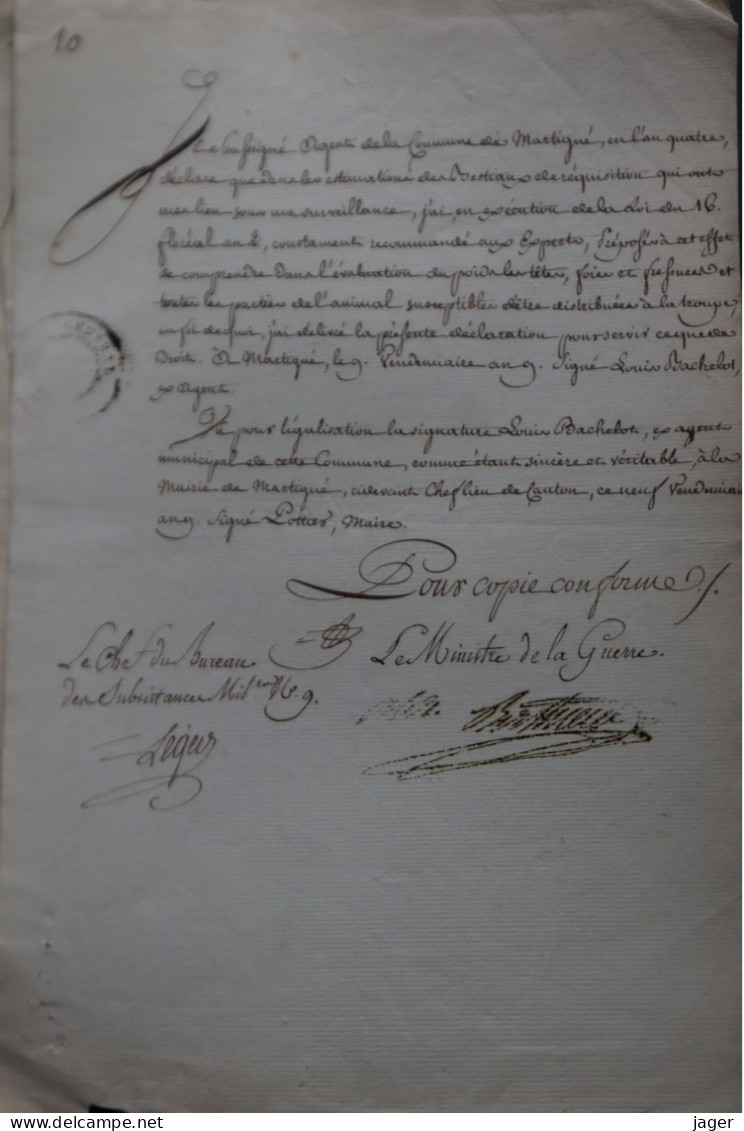 10
Je Soussigné Agent de la Commune de Martigné, en l'an quatre,
déclare que dans les estimations des Bestiaux de réquisition qui ont
eu lieu sous ma surveillance, j'ai, en exécution de la Loi du 16.
floréal an 2, constament recommandé aux Experts, Préposés à cet effet
de comprendre dans l'évaluation du poids les têtes, foies et fressures et
toutes les parties de l'animal susceptibles d'être distribuées à la troupe,
en foi de quoi, j'ai délivré la présente déclaration pour servir ce que de
Droit. A Martigné, le 9. Vendemiaire an 9. Signé Louis Bachelot,
ex Agent.
Vu pour légalisation la signature Louis Bachelot, ex agent
municipal de cette Commune, comme étant sincère et véritable, à la
Mairie de Martigné, cidevant Cheflieu de Canton, ce neuf Vendemiaire
an 9. Signé Pottier, Maire.
Pour copie conforme.
Le Ministre de la Guerre.
Le Chef du Bureau
des Subsistances Mil.res N.o 9.
Leger
jager